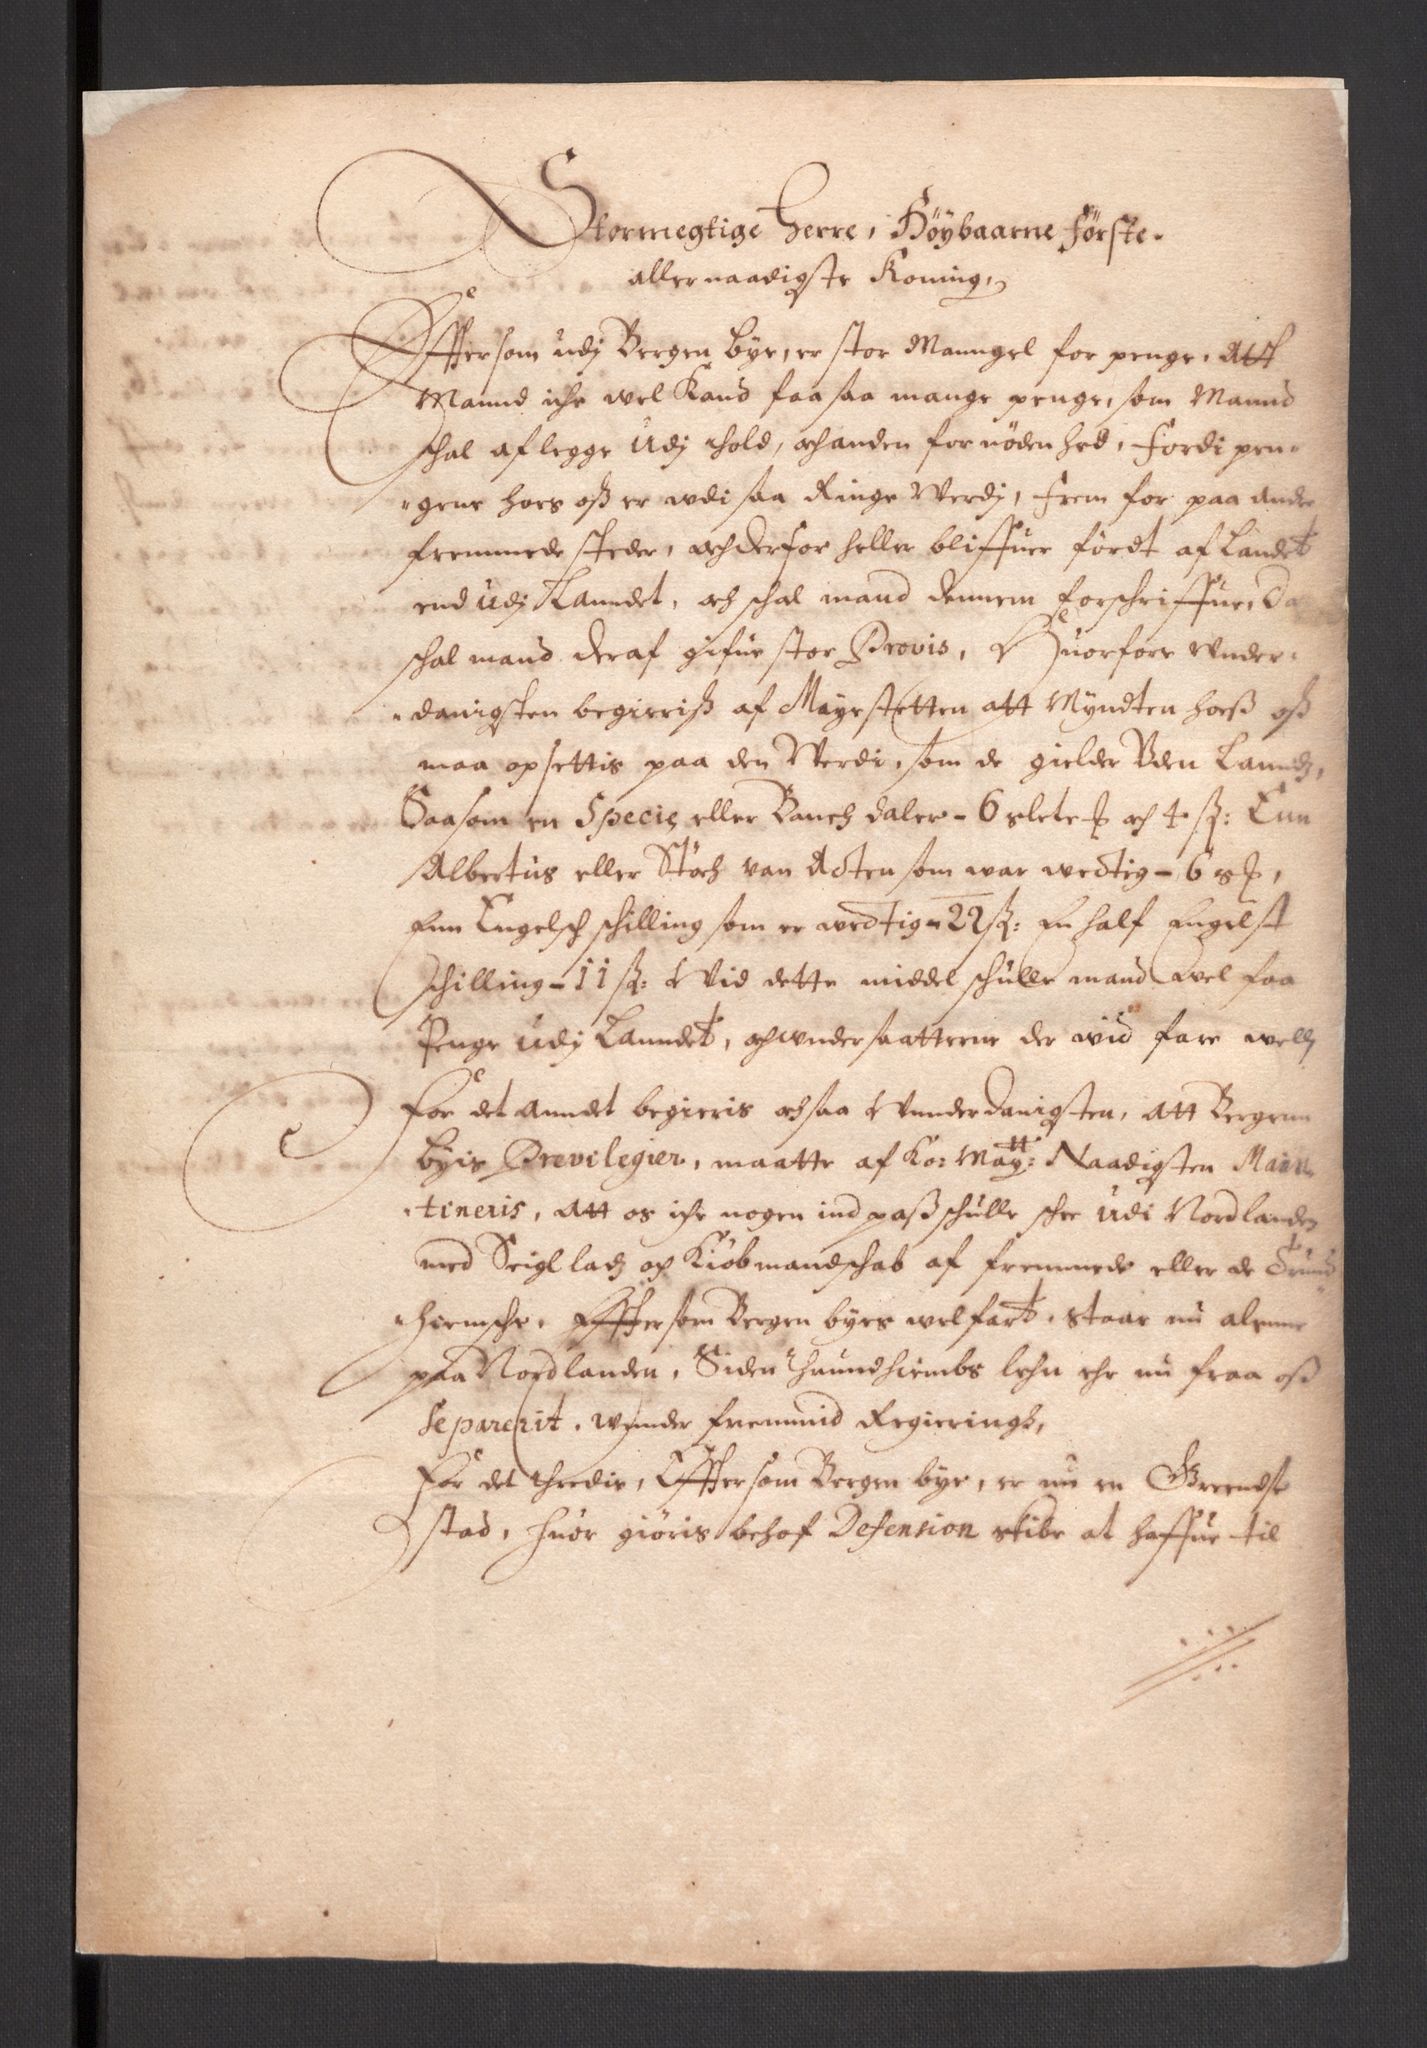 Stormegtige Herre, Höybaarne Förste,
allernaadigste Koning,
Effter som udj Bergen bye, er stor Manngel for penge, Att
Mannd iche wel Kand faa saa mange penge, som Mannd
schal aflegge Udj thold, och anden fornödenhed, Fordi pen-
gene hoes oß er wdi saa Ringe Werdj, frem for paa andre
fremmede steder, och derfor heller bliffuer fördt af Landet
end Udj Lanndet, och schal mand dennem forschriffue, Da
schal mand deraf gifue stor Provis, Huorfore vnder-
danigsten begieriß af Mayestetten att Myndten hoeß oß
maa opsettis paa den Werdi, som de gielder Vden Lanndz,
Saasom en Specie eller Banch daler - 6 slete & och 4 ß: Enn
Albertus eller Stöch van Acten som war wectig - 6 &,
Enn Engelsch schilling som er wectig - 22 ß: En half Engelst
schilling - 11 ß: Wid dette middel schulle mand wel faa
Penge Udj Lanndet, och wndersaatterne der wid fare well,
For det anndet begieris och saa Wnnderdanigsten, att Bergenn
byis Previlegier, maatte af Ko: Maytt: Naadigsten Main
tineris, att os iche nogen indpaß schulle schee Udi Nordlanden
med Seiglladz og Kiöbmandschab af fremmede eller de Trund
hiemsche, Effter som Bergen byes welfart, staar nu alenne
paa Nordlanden, Siden Thrundhiembs lehn ehr nu fraa oß
Separerit, wnnder fremmid Regierinngh,
For det thredie, Effter som Bergen bye, er nu en Greendse
stad, huor giöris behof Defension skibe at haffue til